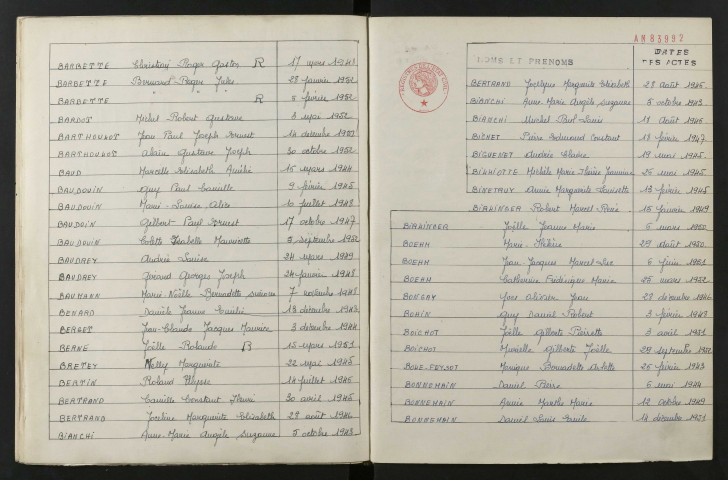 BARBETTE Christian Roger Gaston R 17 mars 1948
BARBETTE Bernard Roger Jules 28 janvier 1952
BARBETTE " R 5 février 1952
BARDOT Michel Robert Gustave 3 mai 1952
BARTHOULOT Jean Paul Joseph Ernest 14 décembre
BARTHOULOT Alain Gustave Joseph 30 octobre 1952
BAUD Marcelle Elisabeth 15 mars 1944
BAUDOUIN Guy Paul Camille 9 février 1945
BAUDOUIN Marie-Louise 10 juillet 1948
BAUDOIN Gilbert Paul Ernest 17 octobre 1947
BAUDOUIN Colette Isabelle Mauricette septembre 1952
BAUDREY Andrée Louise 24 mars 1949
BAUDREY Georges Joseph 24 janvier 1948
BAUMANN Marie-Noëlle Bernadette Suzanne 7 novembre 1948
BENARD Danièle Jeanne 18 décembre 1943
BERGOT Jean-Claude Jacques Maurice 3 décembre 1944
BERNE Joëlle Rolande B 15 mars 1951
BRETEY Nelly Marguerite 22 mai 1945
BERTIN Roland Ulysse 14 juillet 1946
BERTRAND Camille Constant Henri 30 avril 1945
BERTRAND Joceline Marguerite Elisabeth 28 août 1946
BIANCHI Anne-Marie Angèle Suzanne 5 octobre 1943
AM83992
NOMS ET PRENOMS DATES
DES ACTES
BERTRAND Jocelyne Marguerite Elisabeth 28 août
BIANCHI Anne-Marie Angèle Suzanne 5 octobre 1943
BIANCHI Michel Paul Louis 18 août 1946
BICHET Pierre Edmond Constant 18 février 1947
BIGUENET Andrée Claire 19 mars 1945
Michèle Marie Jeannine 26 mai 1945
BINETRUY Annie Marguerite 13 février 1945
BIRKINGER Robert Marcel René 15 janvier 1949
BIRKINGER Joëlle Jeanne Marie mars 1950
BOEHM Marie-Hélène 29 août 1950
BOEHM Jean Jacques Marcel Luc 6 juin 1951
BOEHM Catherine Frédérique Marie 25 mars 1952
BONGAY Yves Olivier Jean 28 décembre 1946
BOHIN Guy Daniel Robert 3 février 1948
BOICHOT Joëlle Gilberte Pierrette 3 avril 1951
BOICHOT Murielle Gilberte Joëlle 29 septembre 1952
Monique Bernadette Arlette 25 février 1943
BONHOMAIN Daniel Pierre 6 mai 1944
BONNEMAIN Annie Marthe Marie 12 octobre 1949
BONNEMAIN Daniel Louis Emile 14 décembre 1951